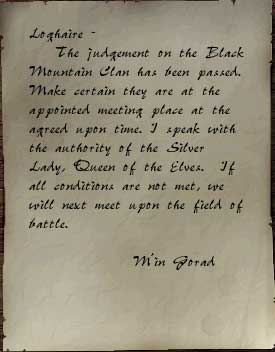 Loghaire -
The judgement on the Black
Mountain Clan has been passed.
Make certain they are at the
appointed meeting place at the
agreed upon time. I speak with
the authority of the Silver
Lady, Queen of the Elves. If
all conditions are not met, we
will next meet upon the field of
battle.
M'in Gorad